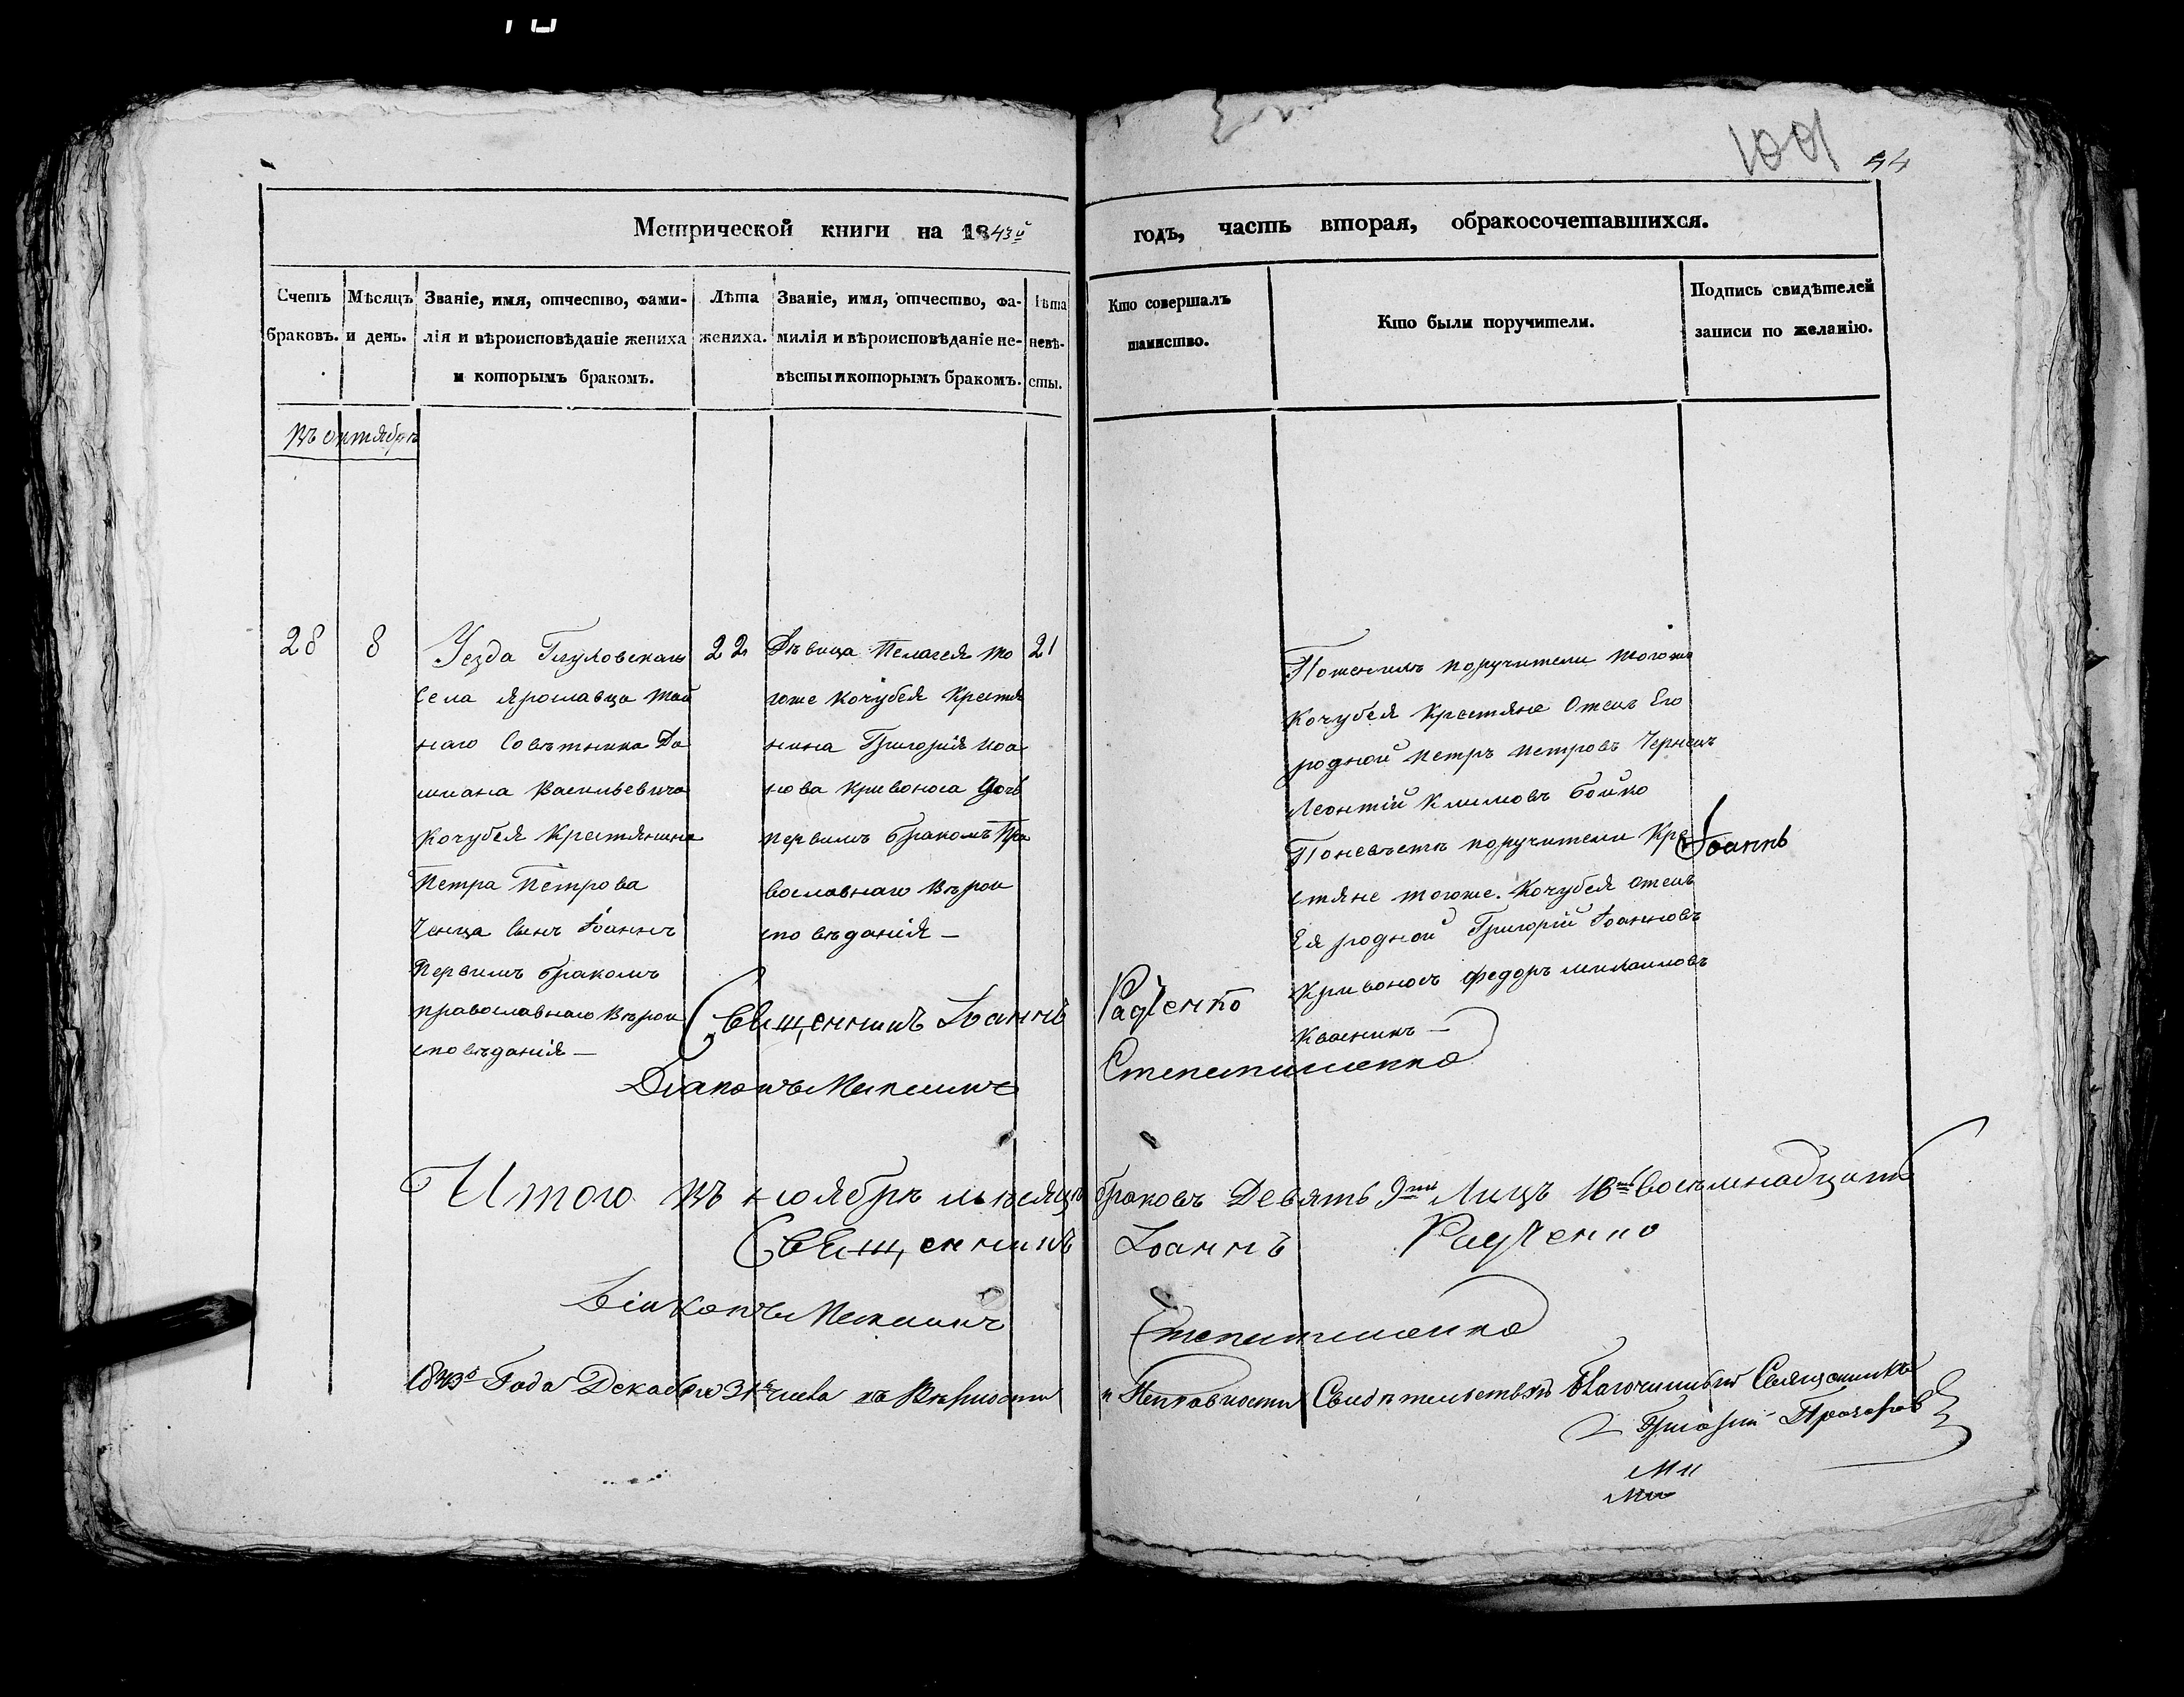 101
44
Метрической книги на 1843й
годъ, часть вторая, обракосочетавшихся.
Счетъ браковъ.
Мѣсяцъ и день.
Званіе, имя, отчество, фами-
лія и вѣроисповѣданіе жениха
и которымъ бракомъ.
Лѣта
жениха.
Званіе, имя, отчество, фа-
милія и вѣроисповѣданіе не-
вѣсты и которымъ бракомъ.
Лѣта
невѣ-
сты.
Кто совершалъ
таинство.
Кто были поручители.
Подпись свидѣтелей
записи по желанію.
въ октябрѣ
28
8
Уезда Глуховскаго
села Ярославца тай
наго Совѣтника Де
миана Васильевича
Кочубея Крестянина
Петра Петрова
сынъ Іоаннъ
первимъ бракомъ
православнаго вѣрои
сповѣданія —
22
Дѣвица Пелагея то
гоже Кочубея Крестя
нина Григорія Иоа
нова Кривоноса дочь
первимъ бракомъ Пра
вославнаго вѣрои
споведанія —
21
Поженихѣ поручители тогоже
Кочубея Крестяне Отецъ Его
родной Петръ Петровъ Чернецъ
Леонтій Климовъ Бойко
Поневѣстѣ поручители Кре
стяне тогоже Кочубея отецъ
Ея родной Григорій Іоанновъ
Кривоносъ Федоръ Михаиловъ
Квасникъ —
Іоаннъ
Священникъ Іоаннъ Радченко
Діаконъ Максимъ
Итого въ ноябрѣ мѣсяцѣ браковъ Девять 9ть Лицъ 18ть восемнадцать
Священникъ Іоаннъ Радченко
Діаконъ Максимъ
1843го Года Декабря 31го числа въ Вѣрности и Исправности Свидѣтельствовалъ Благочинный Священникъ
Григорій